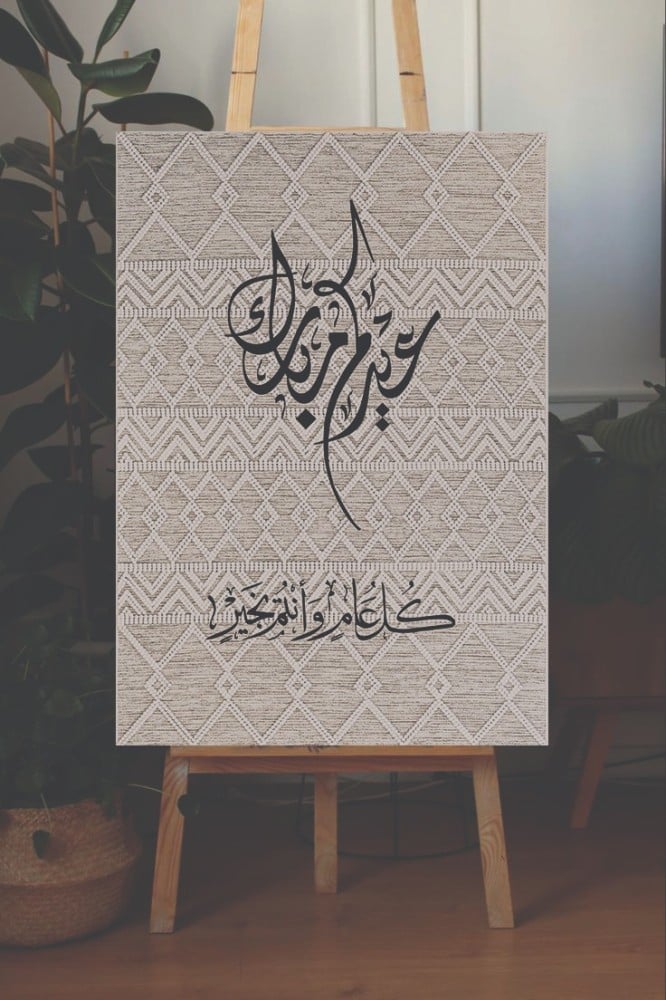 عيدكم مبارك
كُل عَامٍ وَأنتُم بخَيرٍ